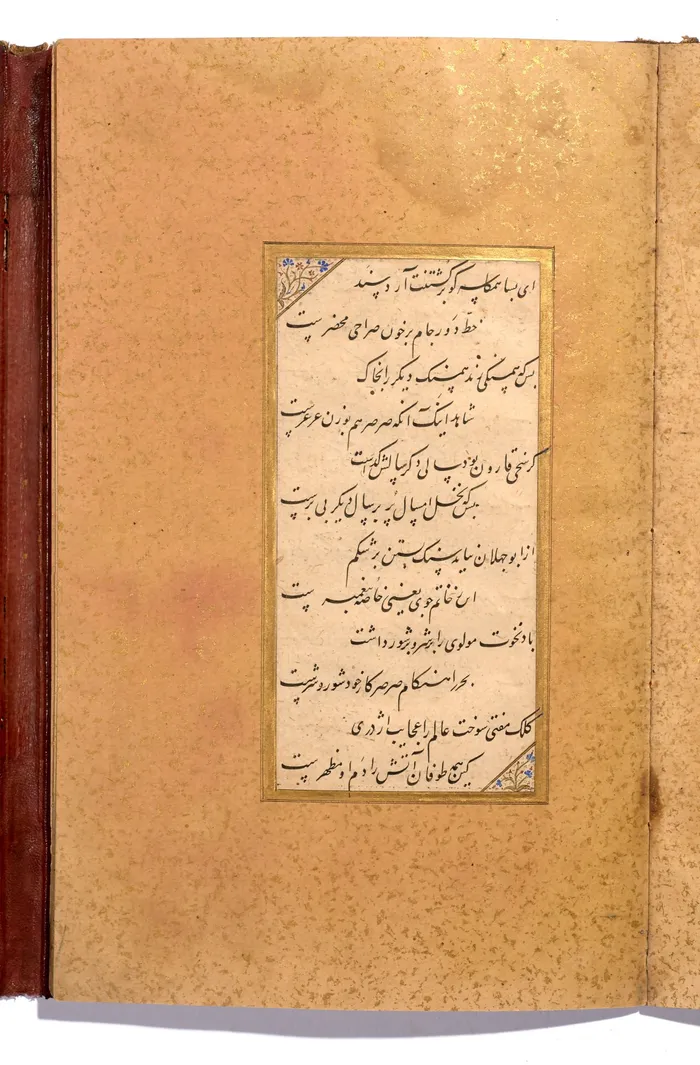 ای بسا همکاسه کو بر کشتنت آرد پسند
خط دور جام بر خون صراحی محضرست
بس که همسنگی زند همسنگ دیگر را بخاک
شاهد اینک آنکه صرصر هم بوزن عرعرست
کر سخی قارون بود سالی دکر سالش کداست
بس که نخل امسال پر بر سال دیگر بی برست
از ابو جهلان نیاید سنک بستن بر شکم
این ز خاتم جوی یعنی خاصه پیغمبرست
باد نخوت مولوی را بر شر و بر شور داشت
بحر را هنکام صرصر کار خود شور و شرست
کلک مفتی سوخت عالم را عجایب اژدری
کس همه طوفان آتش را دم او مظهرست